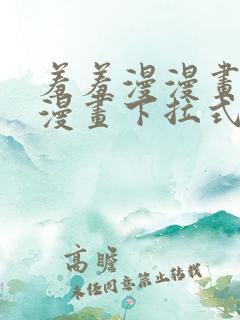 羞羞漫漫畫
漫畫下拉式
高瞻
未经同意禁止转载